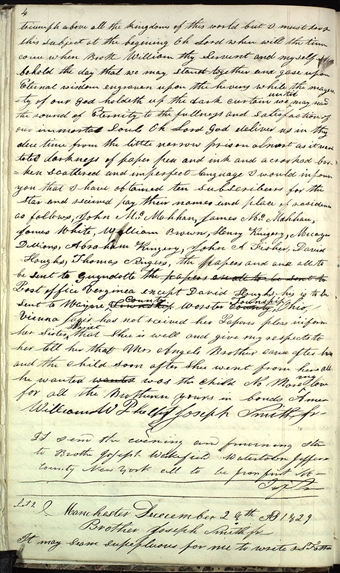 4
triumph above all the kingdoms of this world but I must leave
this subject at the begining Oh Lord when will the time
come when Brother William thy Servent and myself
behold the day that we may stand together and gase upon
Eternal wisdom engraven upon the hevens while the magesty
of our God holdeth up the dark curtain until we may read
the round of Eternity to the fullness and satisfaction of
our immortal souls Oh Lord God deliver us in thy
due time from the little narrow prison almost as it were
totel darkness of paper pen and ink and a crooked broken
scattered and imperfect language I would inform
you that I have obtained ten subscribers for the
Star and received pay their names and place of residence
as follows, John McMahhan, James McMahhan,
James White, William Brown, Henry Kingery, Micayer
Dillions, Abraham Kingery, John A Fisher, David
Houghs, Thomas Singers, the papers and are all to
be sent to Guyndotte the papers are to be sent to
Post office Verginea except David Houghs he is to be
sent to Wayne County Township Worster County Ohio,
Vienna Jaqis has not received her Papers pleas inform
her Sister that she is well and give my respects to
her tell her that Mrs Angels Brother came after her
and the child soon after she went from here all
he wanted was the child No More my love
for all the Brotheren yours in bonds Amen
William W Phelps Joseph Smith Jr
to Brother Joseph Wakefield Watertown Jefferson
County New York
Manchester December 28th AD 1829
Brother Joseph Smith Jr
It may seam superfluous for me to write